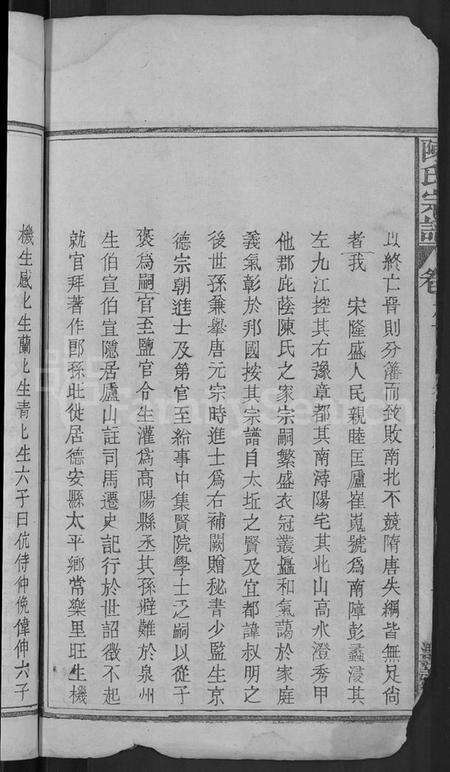 陳氏宗譜 卷
以終亡晉則分藩而致敗南北不競隋唐失綱皆無足尙
者我 宋隆盛人民親睦匡廬崔嵬號爲南障彭蠡浸其
左九江控其右豫章都其南潯陽宅其北山高水澄秀甲
他郡此蔭陳氏之家宗嗣繁盛衣冠叢盛和氣藹於家庭
義氣彰於邦國按其宗譜自太坵之賢及宜都諱叔明之
後世孫兼舉唐元宗時進士爲右補闕贈秘書少監生京
德宗朝進士及第官至給事中集賢院學士之嗣以從子
褒爲嗣官至鹽官令生灌爲高陽縣丞其孫避難於泉州
生伯宣伯宣隱居廬山註司馬遷史記行於世詔徵不起
就官拜著作郎孫此徙居德安縣太平鄉常樂里旺生機
機生感匕生蘭匕生青匕生六子曰伉侍仲俛偉伸六子
FamilySearch